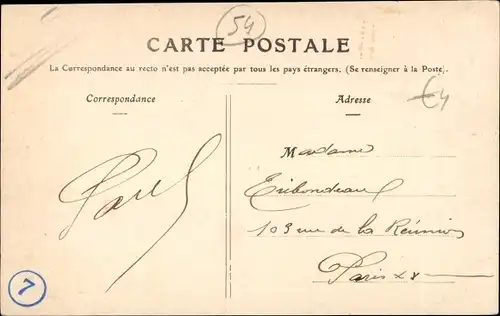 54
CARTE POSTALE
La Correspondance au recto n'est pas acceptée par tous les pays étrangers. (Se renseigner à la Poste).
Correspondance
Adresse
€4
Madame
Paul
103 rue de la Réunion
Paris xx
7